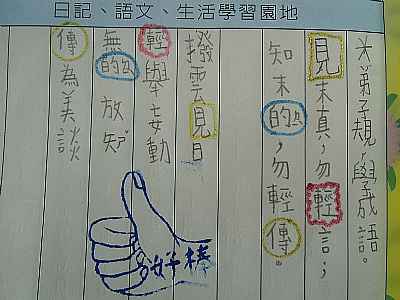 日記、語文、生活學習園地
※弟子規,學成語。
見未真,勿輕言;
知未的,勿輕傳。
撥雲見日
輕舉妄動
無的放矢
傳為美談
好棒